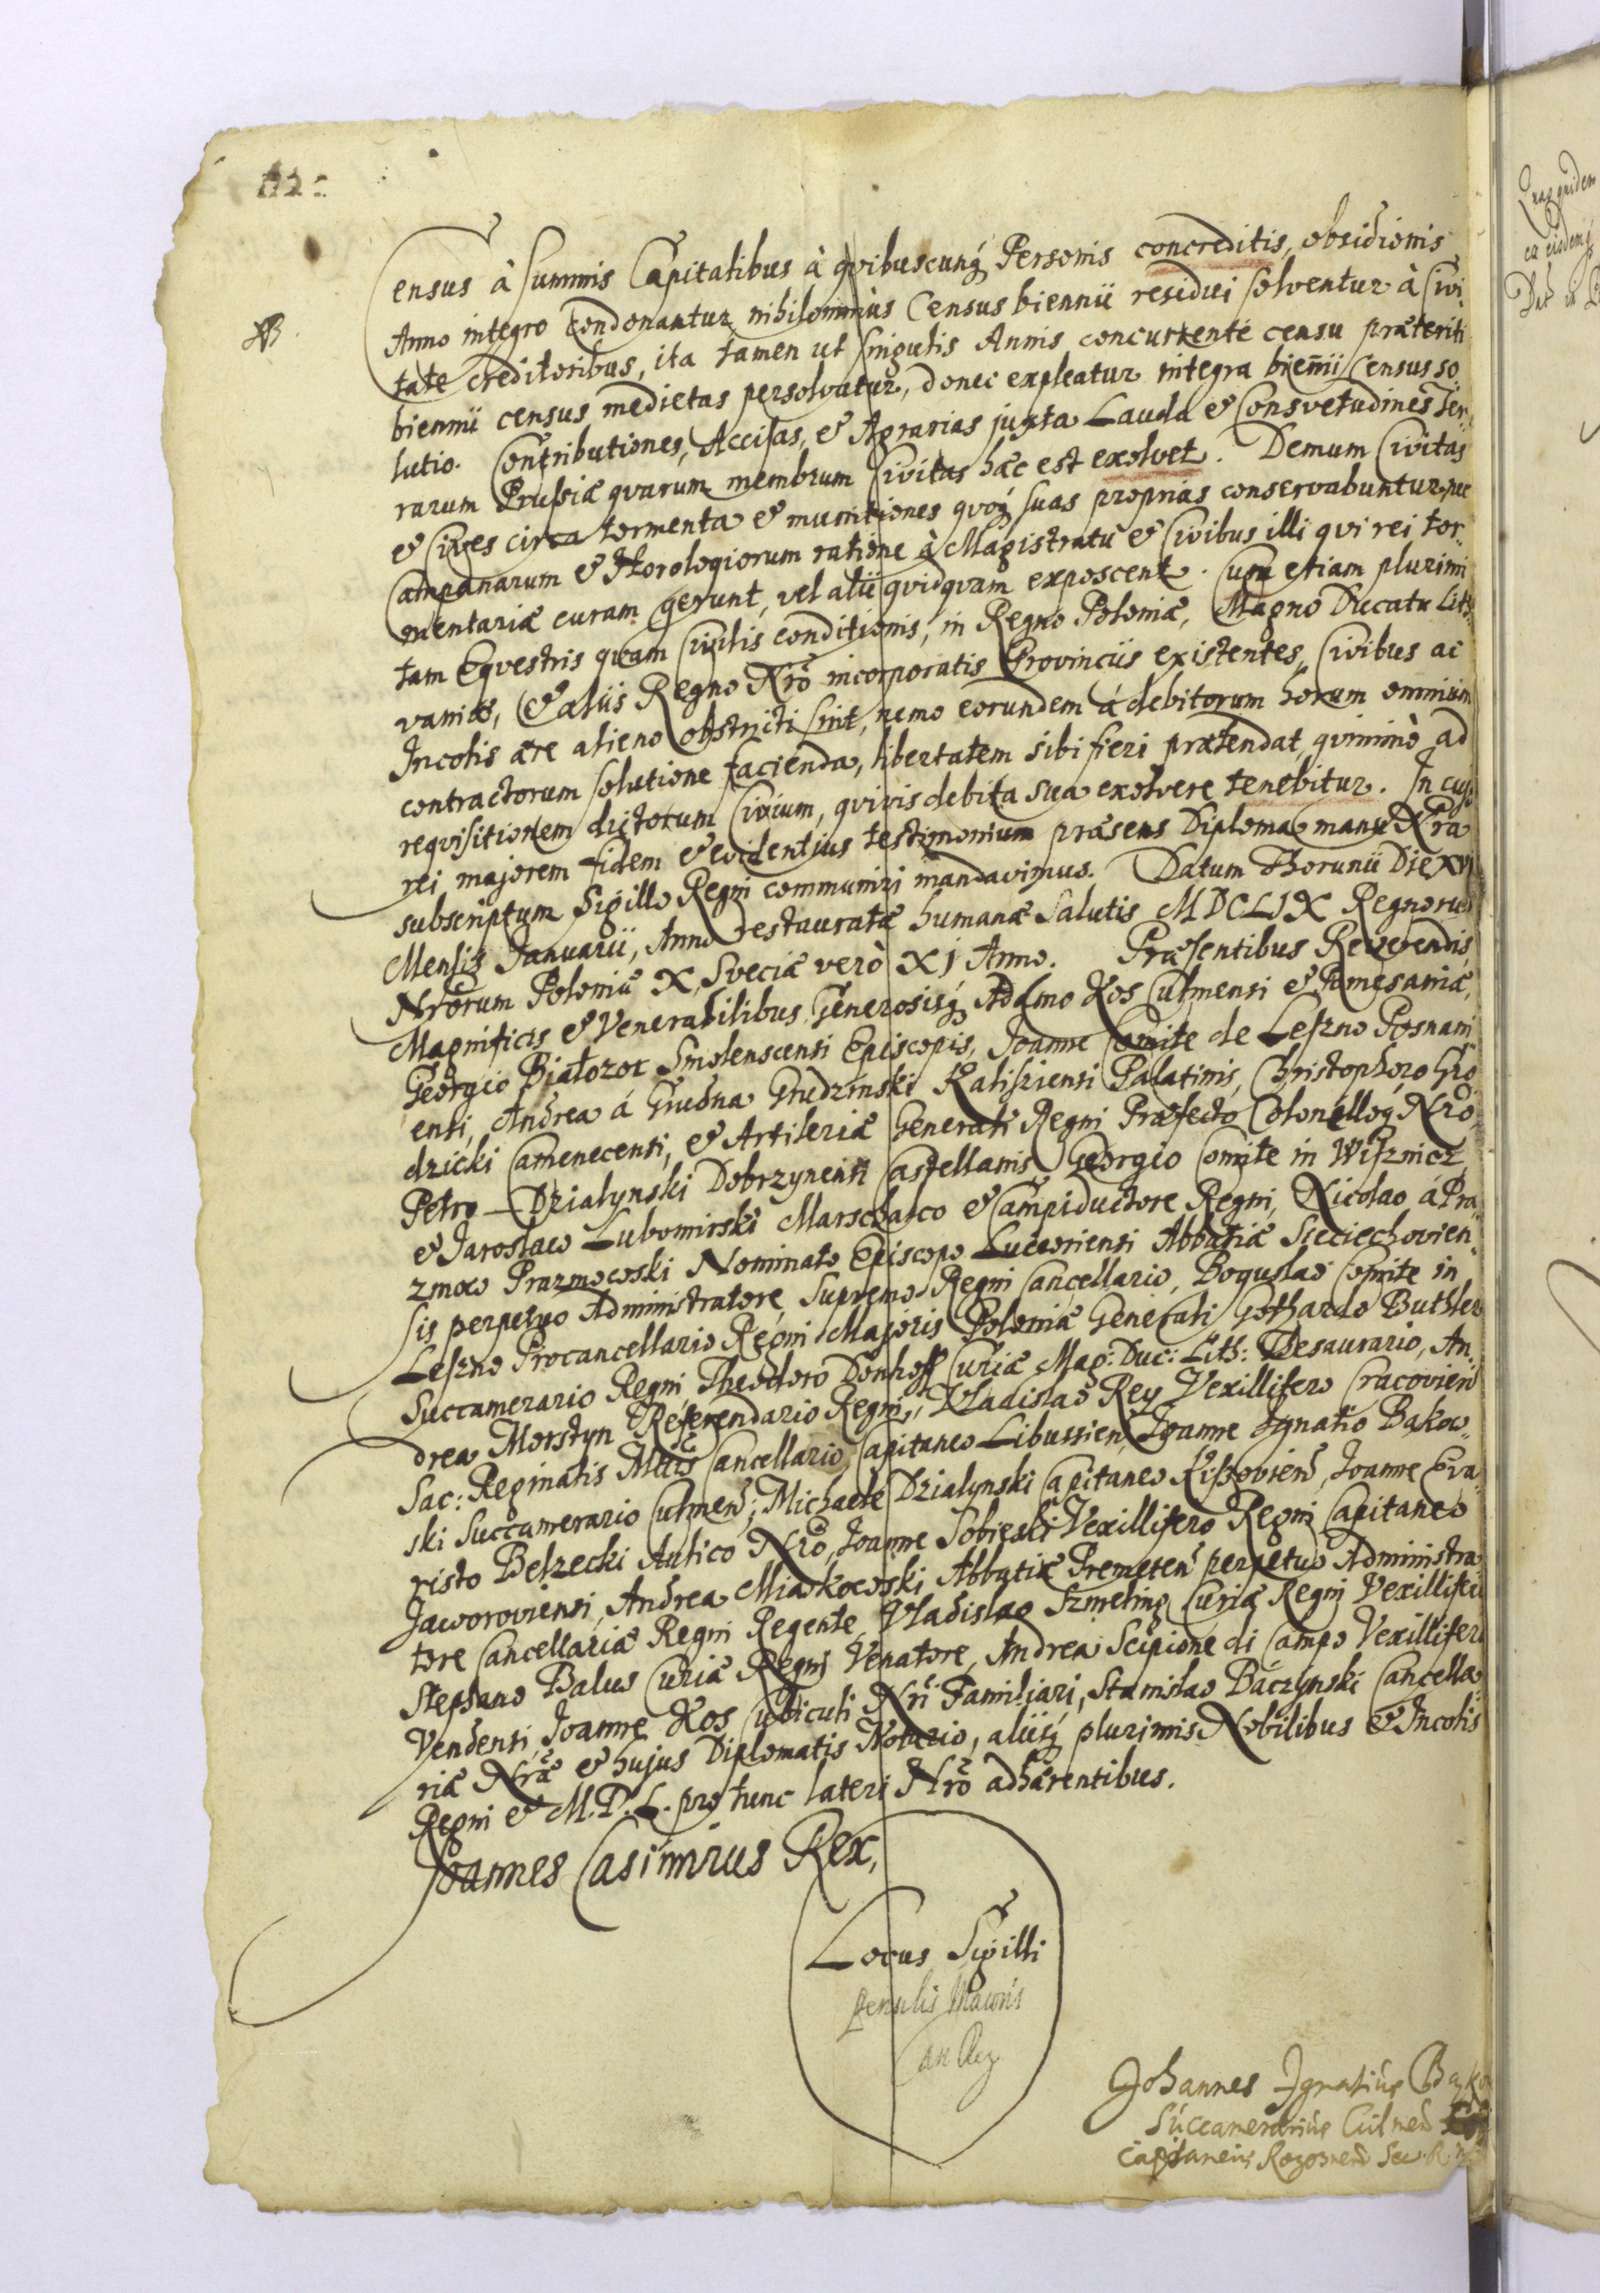 Census à Summis Capitalibus à qvibuscunq́ Personis concreditis, obsidionis
Anno integro condonantur, nihilominùs Census biennii residui solventur à Civi-
tate creditoribus, ita tamen ut singulis Annis concurrente censu præteriti
biennii census medietas persolvatur, donec expleatur integra bieñii Census so-
lutio. Contributiones, Accisas, & Agrarias juxta Lauda & Consvetudines Ter-
rarum Prussiæ qvarum membrum Civitas hæc est exolvet. Demum Civitas
& Cives circa tormenta & munitiones qvoq́ suas proprias conservabuntur, nec
Campanarum & Horologiorum ratione à Magistratu & Civibus illi qvi rei tor-
mentariæ curam gerunt, vel alii qvidqvam exposcent. Cum etiam plurimi
tam Eqvestris qvam Civilis conditionis, in Regno Poloniæ, Magno Ducatu Lith-
vaniæ, & aliis Regno Nrõ incorporatis Provinciis existentes, Civibus ac
Incolis ære alieno obstricti sint, nemo eorundem á debitorum horum omnium
contractorum solutione facienda, libertatem sibi fieri prætendat, qvinimò ad
reqvisitionem dictorum Civium, qvivis debita sua exolvere tenebitur. In cujus
rei majorem fidem & evidentius testimonium præsens Diploma manu Nra
subscriptum Sigillo Regni communiri mandavimus. Datum Thorunii Die XVI
Mensis Januarii, Anno restauratæ humanæ Salutis MDCLIX Regnorum
Nrõrum Poloniæ X, Sveciæ verò XI Anno. Præsentibus Reverendis,
Magnificis & Venerabilibus, Generosisq́ Adamo Kos Culmensi & Pomesaniæ,
Georgio Białozor Smolenscensi Episcopis, Joanne Comite de Leszno Posnani-
ensi, Andrea á Grudna Grudzinski Kalisziensi Palatinis, Christophoro Gro-
dzicki Camenecensi, & Artileriæ Generali Regni Præfecto Colonelloq́ Nrõ,
Petro Dzialynski Dobrzynensi Castellanis, Georgio Comite in Wisznicz
& Jaroslaw Lubomirski Marschalco & Campiductore Regni, Nicolao á Pra-
zmow Prazmowski Nominato Episcopo Luceoriensi Abbatiæ Sieciechovien-
sis perpetuo Administratore, Supremo Regni Cancellario, Boguslao Comite in
Leszno Procancellario Regni Majoris Poloniæ Generali, Gothardo Buthler
Succamerario Regni, Theodoro Dönhoff Curiæ Mag: Duc: Lith: Thesaurario, An-
drea Morstyn Referendario Regni, Vladislao Rey Vexillifero Cracovien
Sac: Reginalis Mttis Cancellario, Capitaneo Libussien, Joanne Ignatio Bakow-
ski Succamerario Culmen, Michaele Dzialynski Capitaneo Kiszovien, Joanne Eva-
risto Belzecki Aulico Nrõ, Joanne Sobieski Vexillifero Regni Capitaneo
Jaworoviensi, Andrea Miaskowski Abbatiæ Premeten perpetuo Administra-
tore Cancellariæ Regni Regente, Vladislao Szmeling Curiæ Regni Vexillifero
Stephano Balus Curiæ Regni Venatore, Andrea Scipione di Campo Vexillifero
Vendensi, Joanne Kos Cubiculi Nri Familiari, Stanislao Báczynski Cancella-
riæ Nræ & hujus Diplomatis Notario, aliisq́ plurimis Nobilibus & Incolis
Regni & M.D.L. pro tunc lateri Nrõ adhærentibus.
Joannes Casimirus Rex,
Locus Sigilli
pensilis Maioris
Can Reg
Johannes Ignatius Bąko
Succamerarius Culmen
Capitaneus